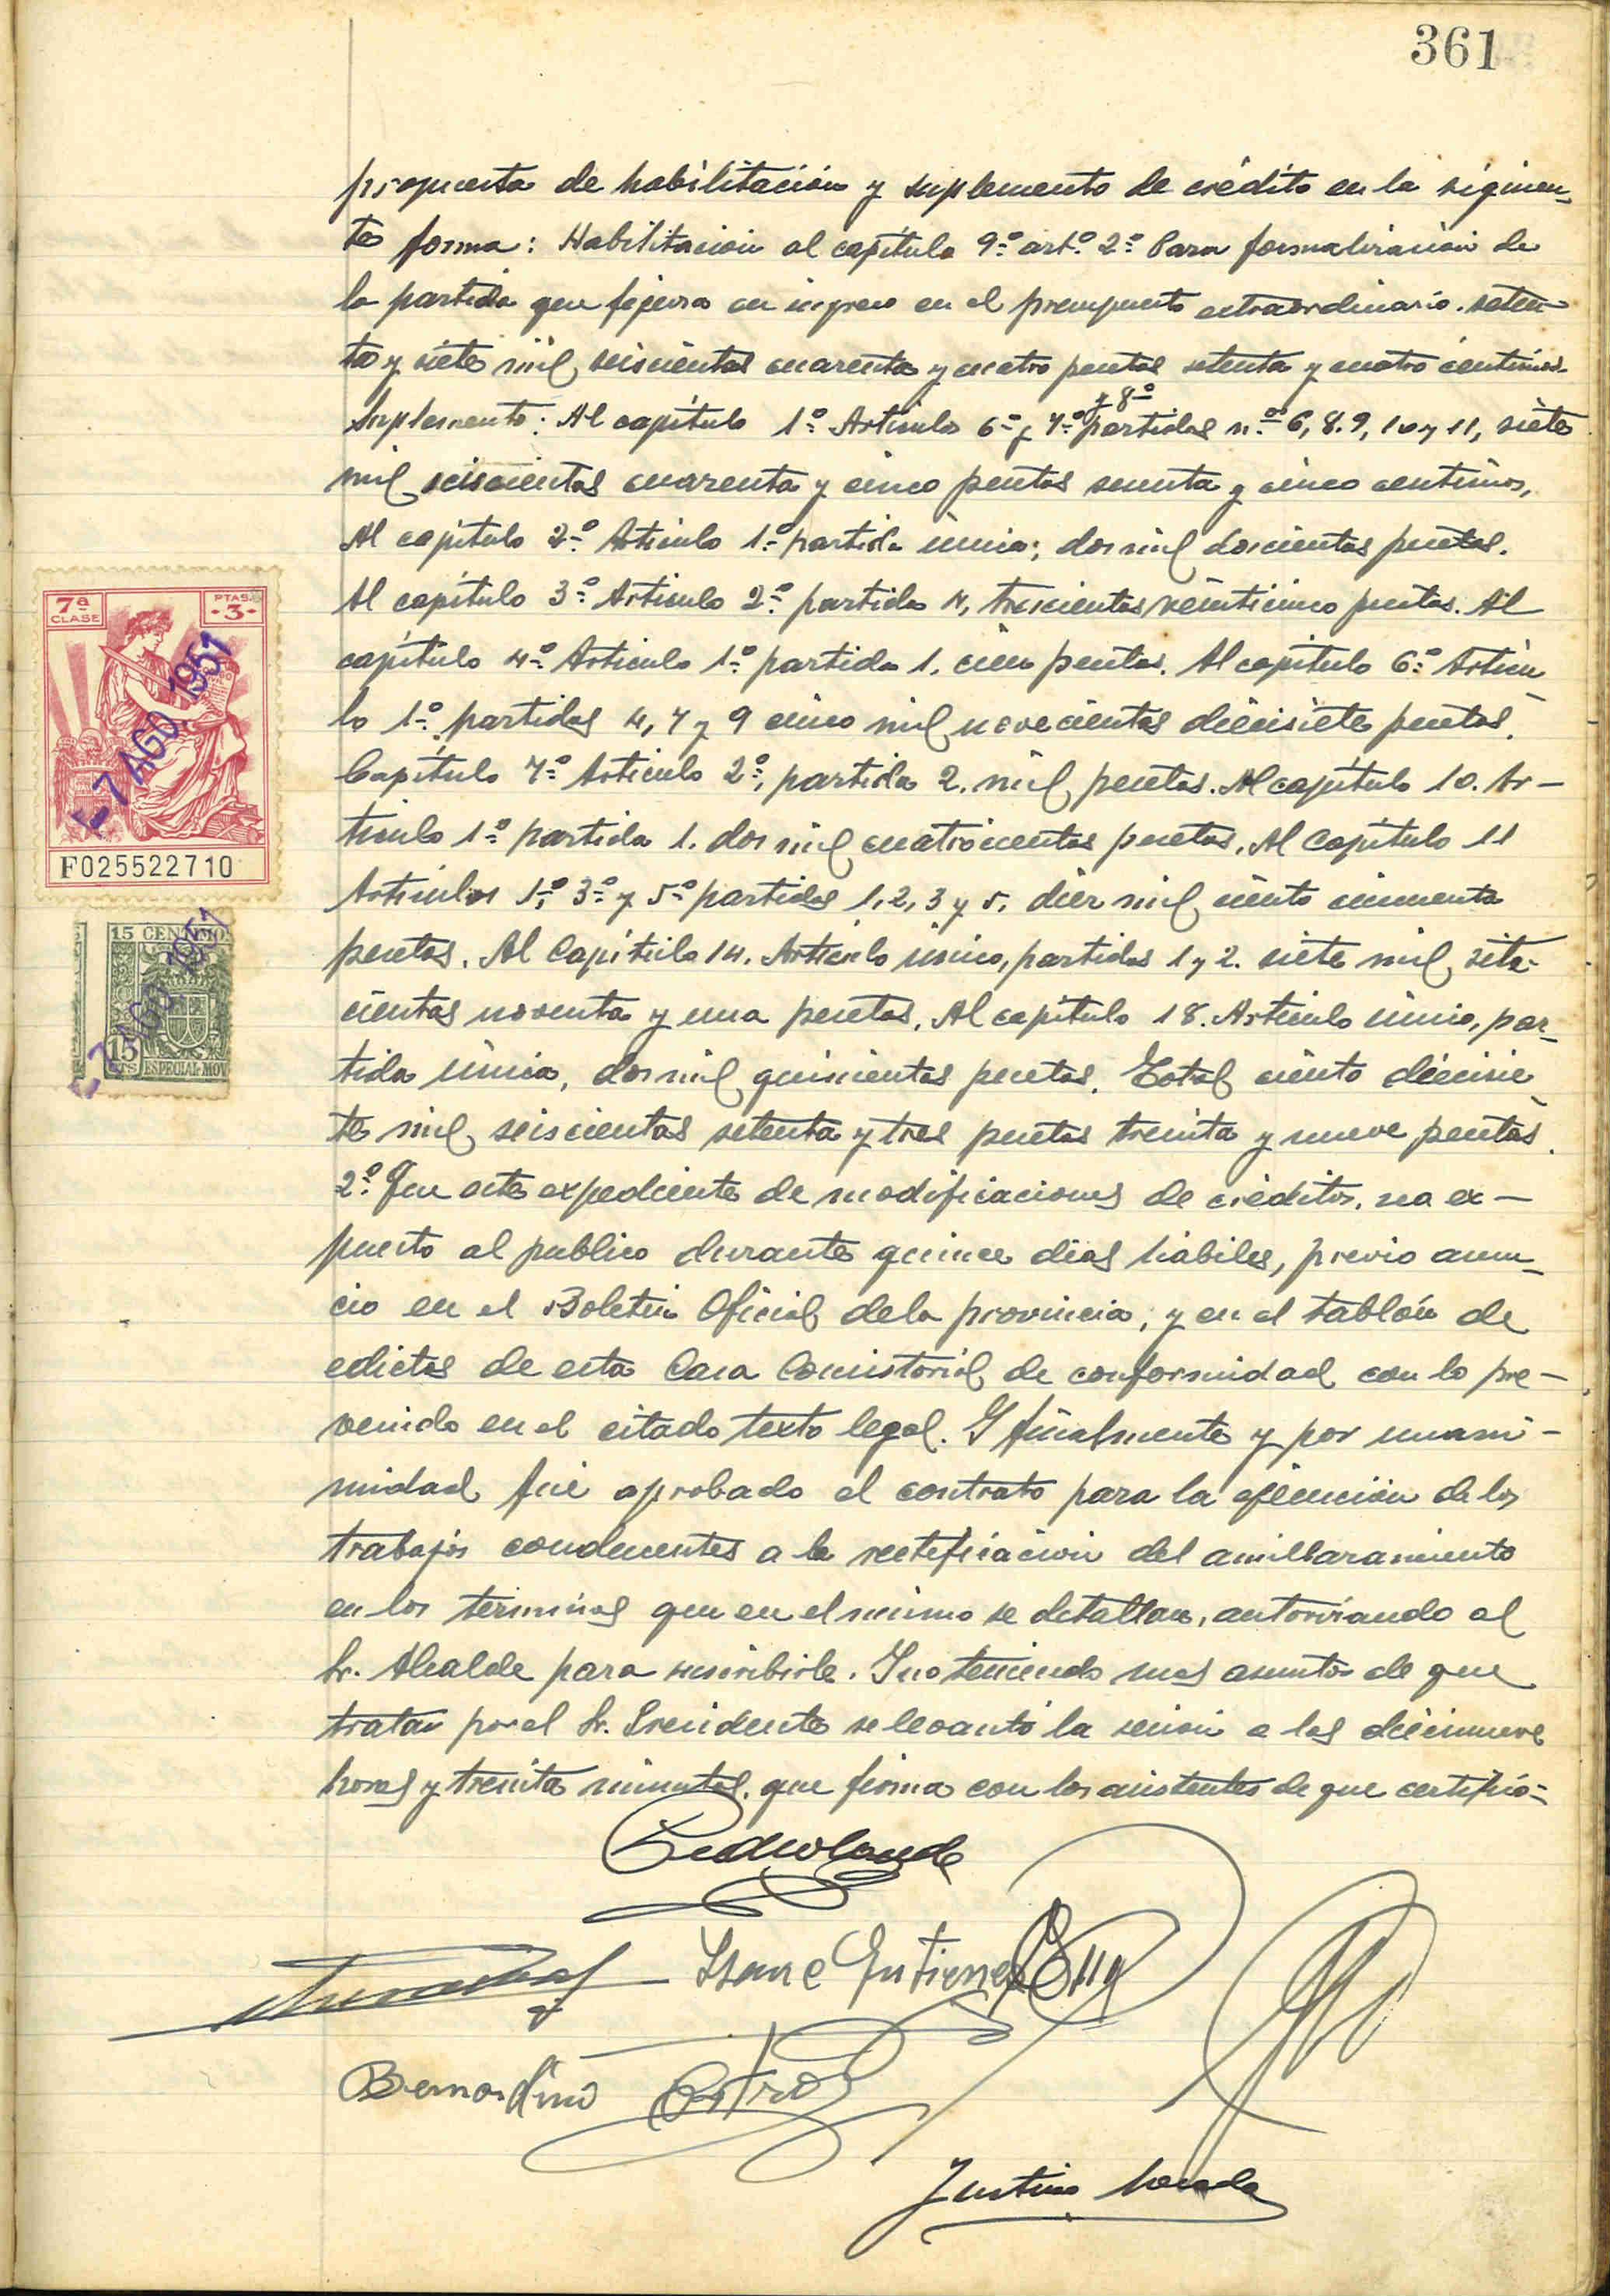 361
propuesta de habilitación y suplemento de crédito en la siguien-
te forma: Habilitación al capítulo 9º artº 2º Para formalización de
la partida que figura en ingreso en el presupuesto extraordinario. seten-
ta y siete mil, seiscientas cuarenta y cuatro pesetas setenta y cuatro centimos.
y 8º
Suplemento: Al capítulo 1º Artículos 6º y 7º partidas n.os 6, 8. 9, 10 y 11, siete
mil seiscientas cuarenta y cinco pesetas sesenta y cinco centimos,
Al capítulo 2º Artículo 1º partida única; dos mil doscientas pesetas.
Al capítulo 3º Artículo 2º partida 4, trescientas veinticinco pesetas. Al
capítulo 4º Artículo 1º partida 1. cien pesetas. Al capítulo 6º Artícu-
lo 1º partidas 4, 7 y 9 cinco mil novecientas diecisiete pesetas.
Capítulo 7º Artículo 2º, partida 2. mil pesetas. Al capítulo 10. Ar-
tículo 1º partida 1. dos mil cuatrocientas pesetas. Al Capítulo 11
Artículos 1º, 3º y 5º partidas 1, 2, 3 y 5, diez mil ciento cincuenta
pesetas. Al Capítulo 14. Artículo único, partidas 1 y 2. siete mil, sete-
cientas noventa y una pesetas. Al capítulo 18. Artículo único, par-
tida única, dos mil quinientas pesetas. Total ciento diecisie-
te mil, seiscientas setenta y tres pesetas treinta y nueve pesetas.
2º Que este expediente de modificaciones de créditos, sea ex-
puesto al publico durante quince dias hábiles, previo anun-
cio en el Boletín Oficial de la provincia, y en el tablón de
edictos de esta Casa Consistorial, de conformidad con lo pre-
venido en el citado texto legal. Y finalmente y por unani-
midad fué aprobado el contrato para la ejecución de los
trabajos conducentes a la rectificación del amillaramiento
en los terminos que en el mismo se detallan, autorizando al
Sr. Alcalde para suscribirle. Y no teniendo mas asuntos de que
tratar por el Sr. Presidente se levantó la sesión a las diecinueve
horas y treinta minutos, que firma con los asistentes de que certifico=
7ª CLASE
PTAS. -3-
- 7 AGO 1951
F025522710
15 CENTIMOS
- 7 AGO 1951
15 CTS ESPECIAL MOV
Isaac Gutierrez
Bernardino Castro
Justino